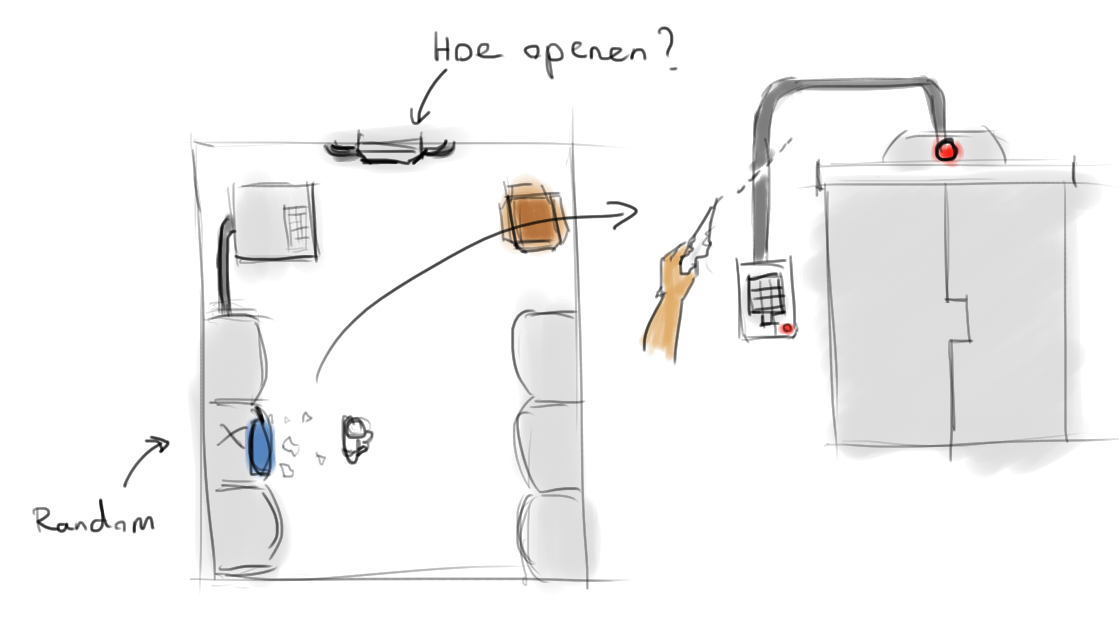 Hoe openen?
Random